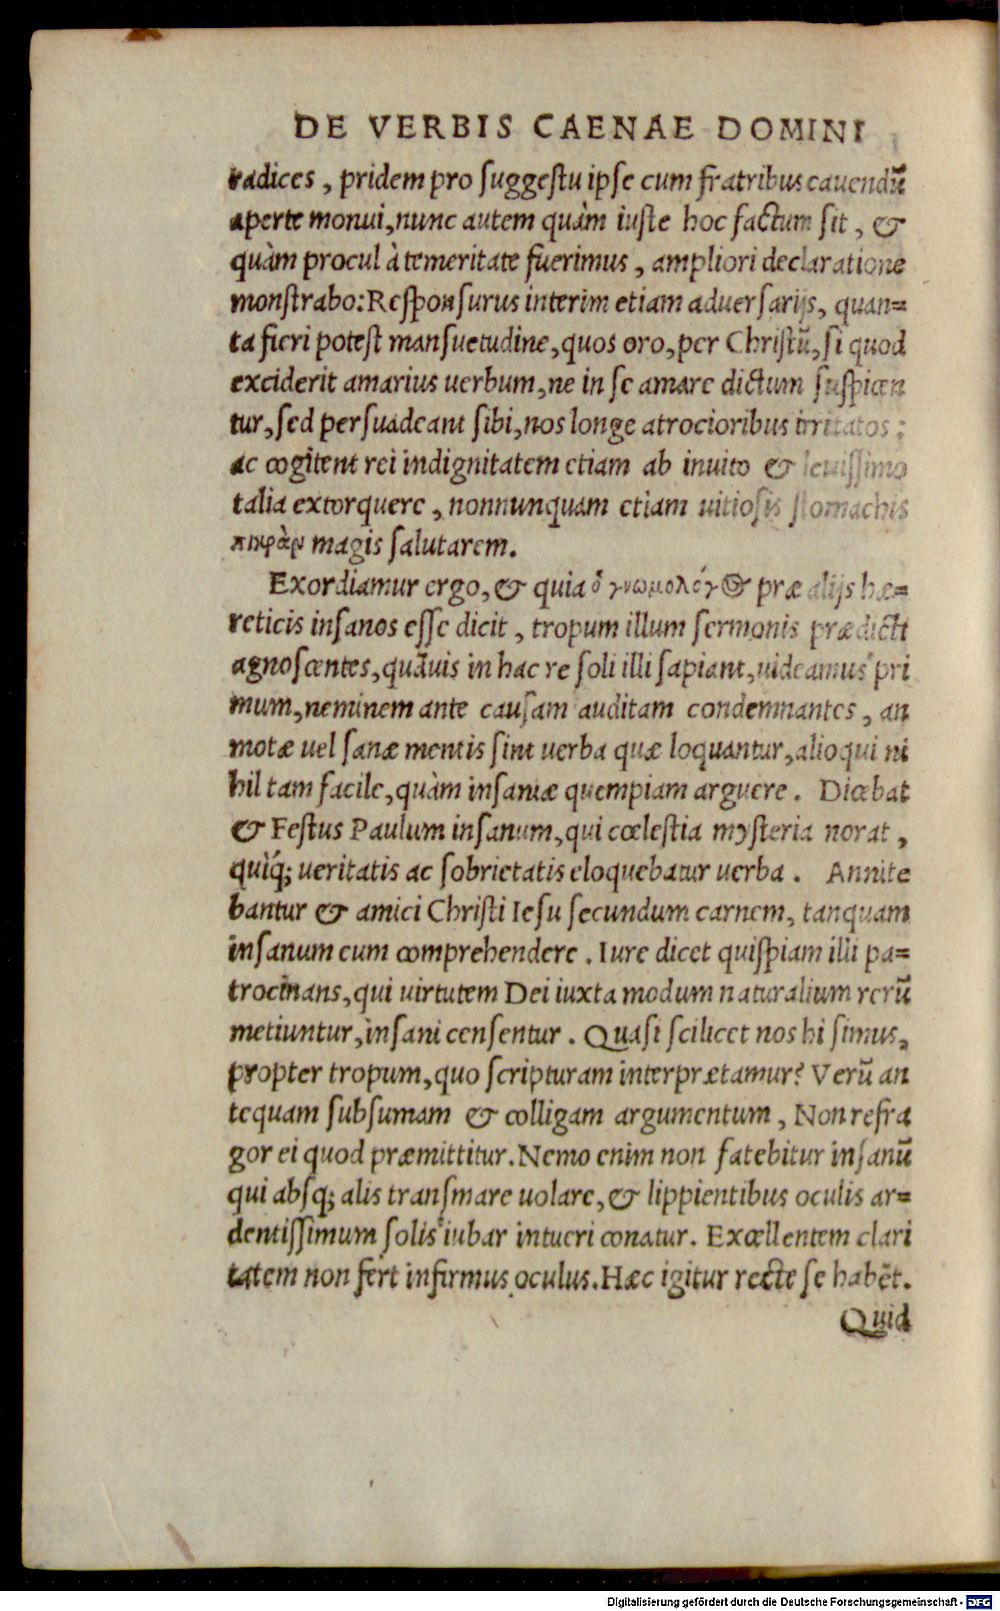 DE VERBIS CAENAE DOMINI
radices, pridem pro ſuggeſtu ipſe cum fratribus cauendũ
aperte monui, nunc autem quàm iuſte hoc factum ſit, &
quàm procul à temeritate fuerimus, ampliori declaratione
monſtrabo: Reſponſurus interim etiam aduerſarijs, quan=
ta fieri poteſt manſuetudine, quos oro, per Chriſtũ, ſi quod
exciderit amarius uerbum, ne in ſe amare dictum ſuſpicen
tur, ſed perſuadeant ſibi, nos longe atrocioribus irritatos:
ac cogitent rei indignitatem etiam ab inuito & leuiſſimo
talia extorquere, nonnunquam etiam uitioſis ſtomachis
πικρὰν magis ſalutarem.
Exordiamur ergo, & quia ὁ γνωμολόγος præ alijs hæ=
reticis inſanos eſſe dicit, tropum illum ſermonis prædicti
agnoſcentes, quãuis in hac re ſoli illi ſapiant, uideamus pri
mum, neminem ante cauſam auditam condemnantes, an
motæ uel ſanæ mentis ſint uerba quæ loquantur, alioqui ni
hil tam facile, quàm inſaniæ quempiam arguere. Dicebat
& Feſtus Paulum inſanum, qui cœleſtia myſteria norat,
quiq́; ueritatis ac ſobrietatis eloquebatur uerba. Annite
bantur & amici Chriſti Ieſu ſecundum carnem, tanquam
inſanum eum comprehendere. Iure dicet quiſpiam illi pa=
trocinans, qui uirtutem Dei iuxta modum naturalium rerũ
metiuntur, inſani cenſentur. Quaſi ſcilicet nos hi ſimus,
propter tropum, quo ſcripturam interprætamur? Verũ an
tequam ſubſumam & colligam argumentum, Non refra
gor ei quod præmittitur. Nemo enim non fatebitur inſanũ
qui abſq; alis tranſmare uolare, & lippientibus oculis ar=
dentiſſimum ſolis iubar intueri conatur. Excellentem clari
tatem non fert infirmus oculus. Hæc igitur recte ſe habẽt.
Quid
Digitalisierung gefördert durch die Deutsche Forschungsgemeinschaft - DFG